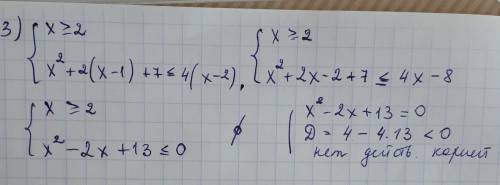 3) { x ≥ 2
x² + 2(x-1) + 7 ≤ 4(x-2).
{ x ≥ 2
x² + 2x - 2 + 7 ≤ 4x - 8
{ x ≥ 2
x² - 2x + 13 ≤ 0
∅
x² - 2x + 13 = 0
D = 4 - 4·13 < 0
нет действ. корней